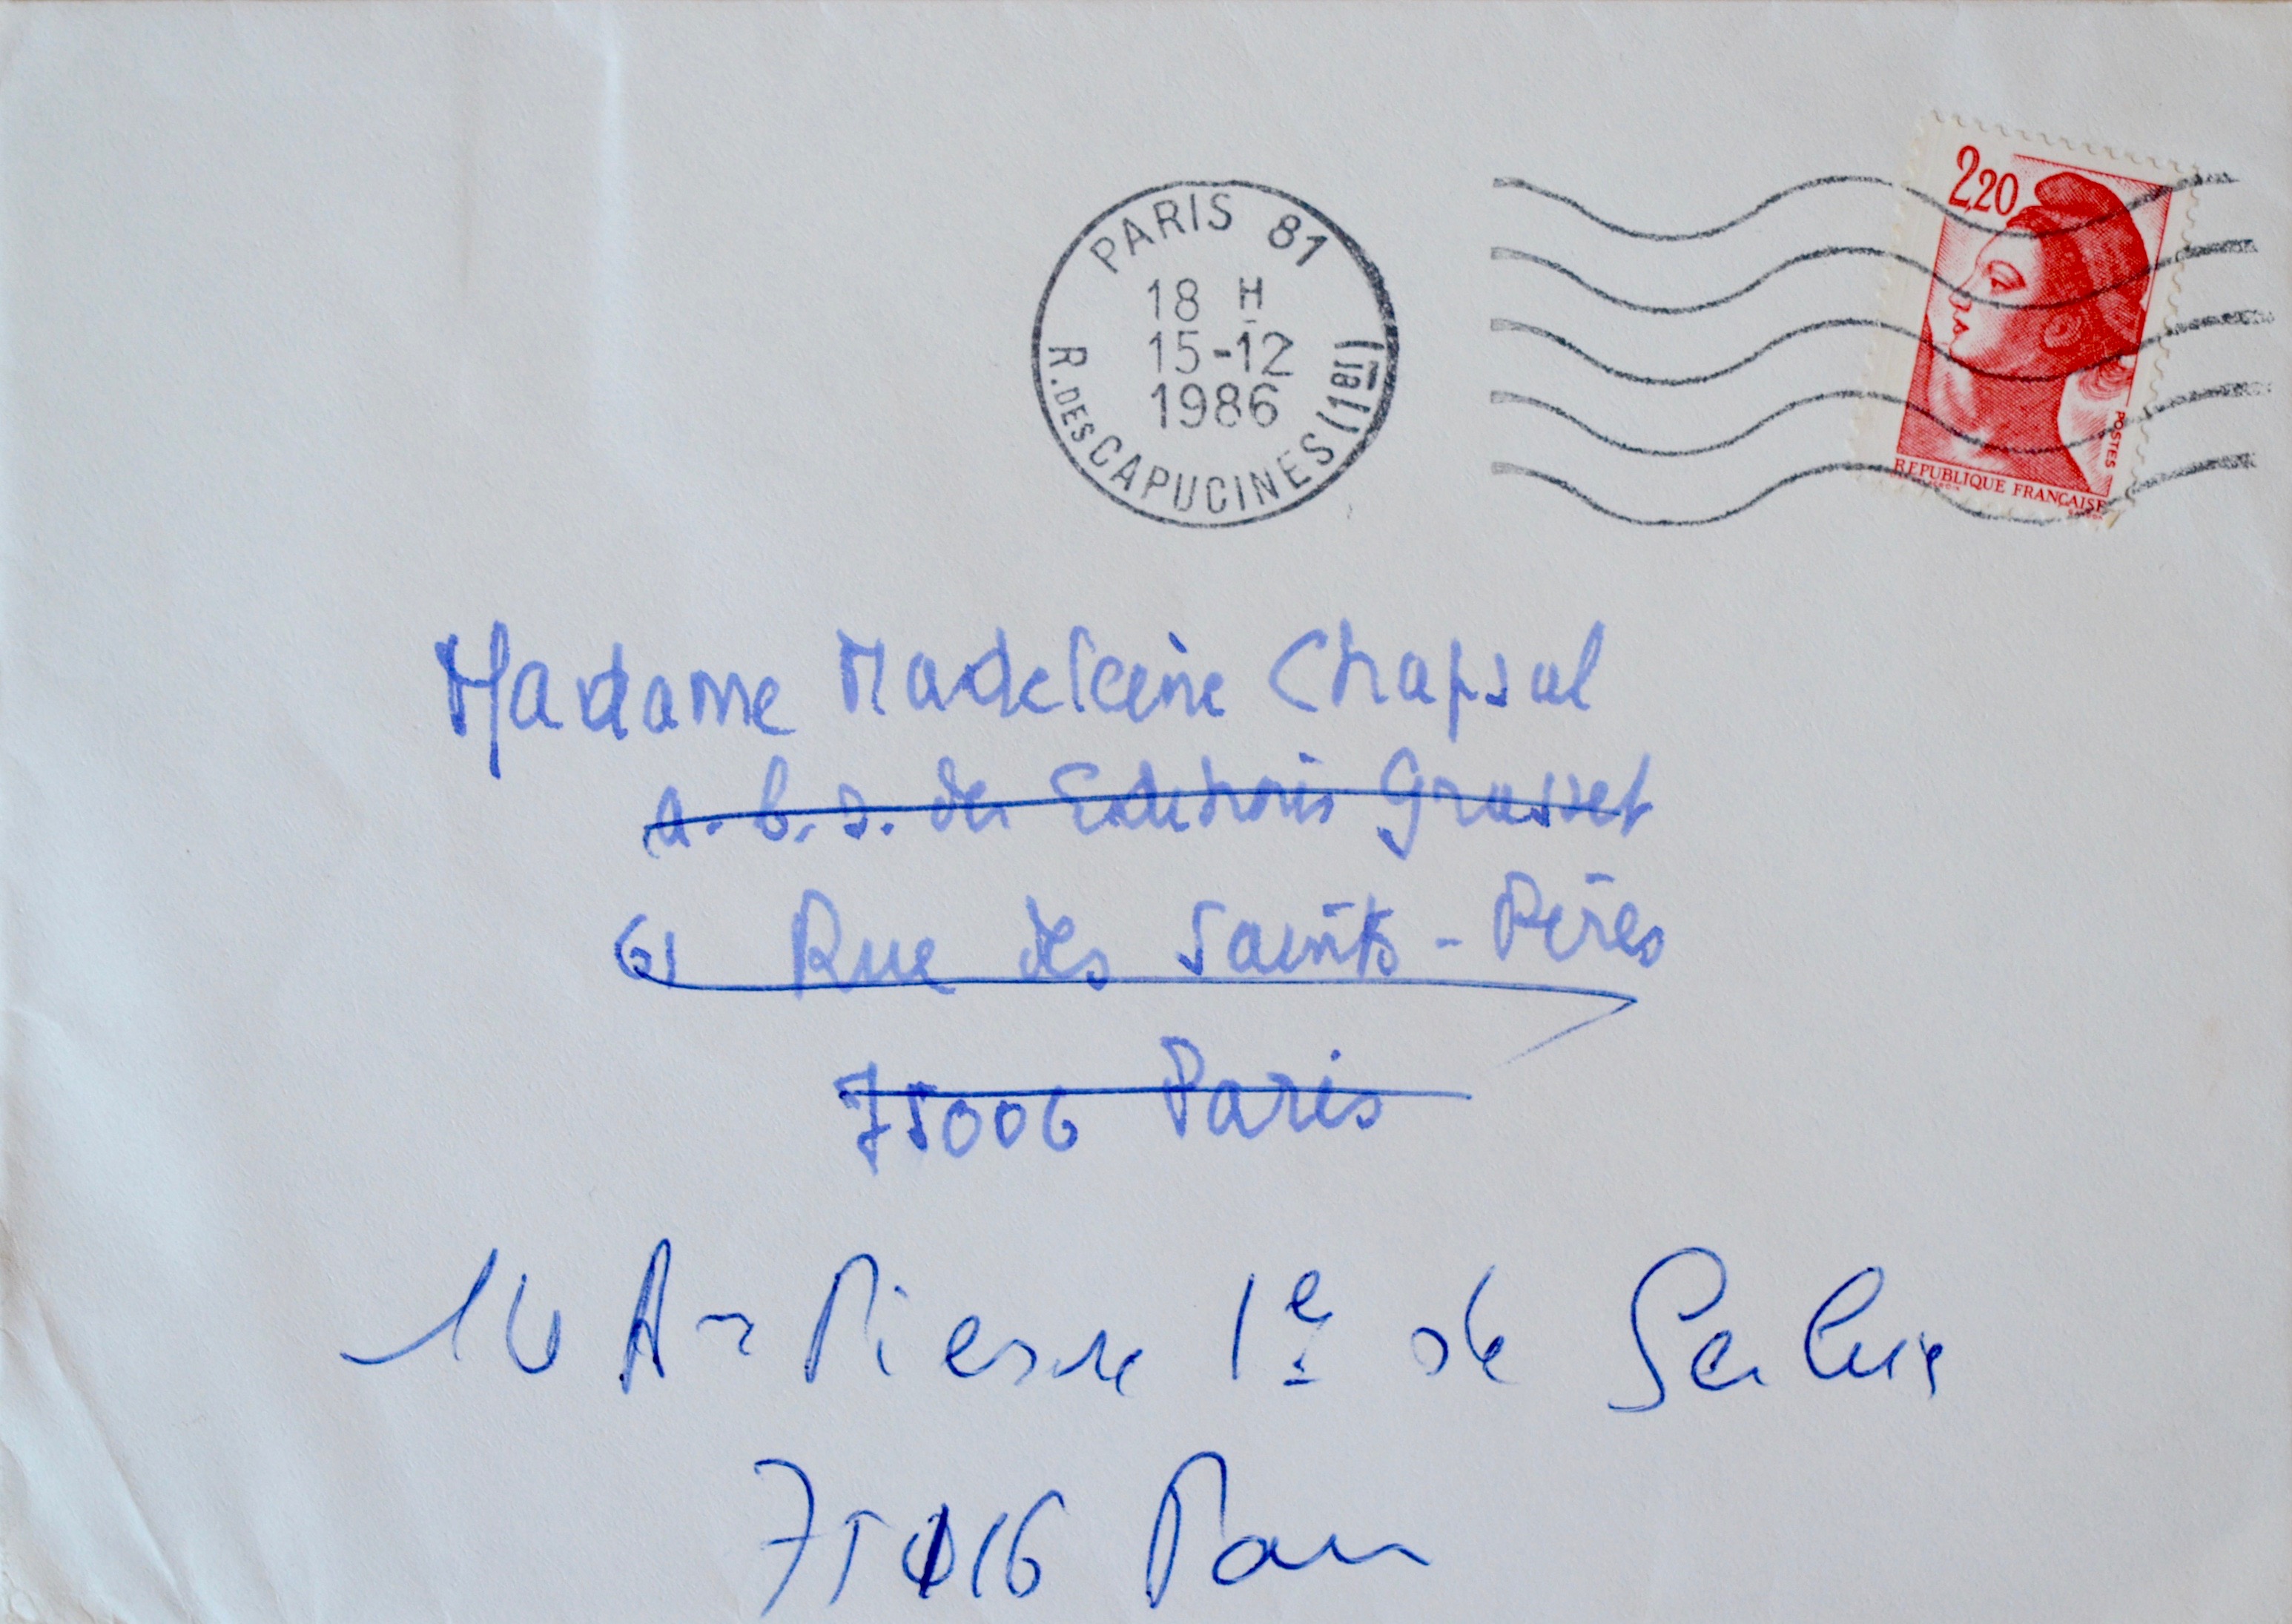 PARIS 81
18 H
15-12
1986
R. DES CAPUCINES (1er)
2,20
POSTES
REPUBLIQUE FRANÇAISE
Madame Madeleine Chapsal
a. b. s. des Editions Grasset
61 Rue des Saints-Pères
75006 Paris
14 Av Pierre 1er de Serbie
75116 Paris